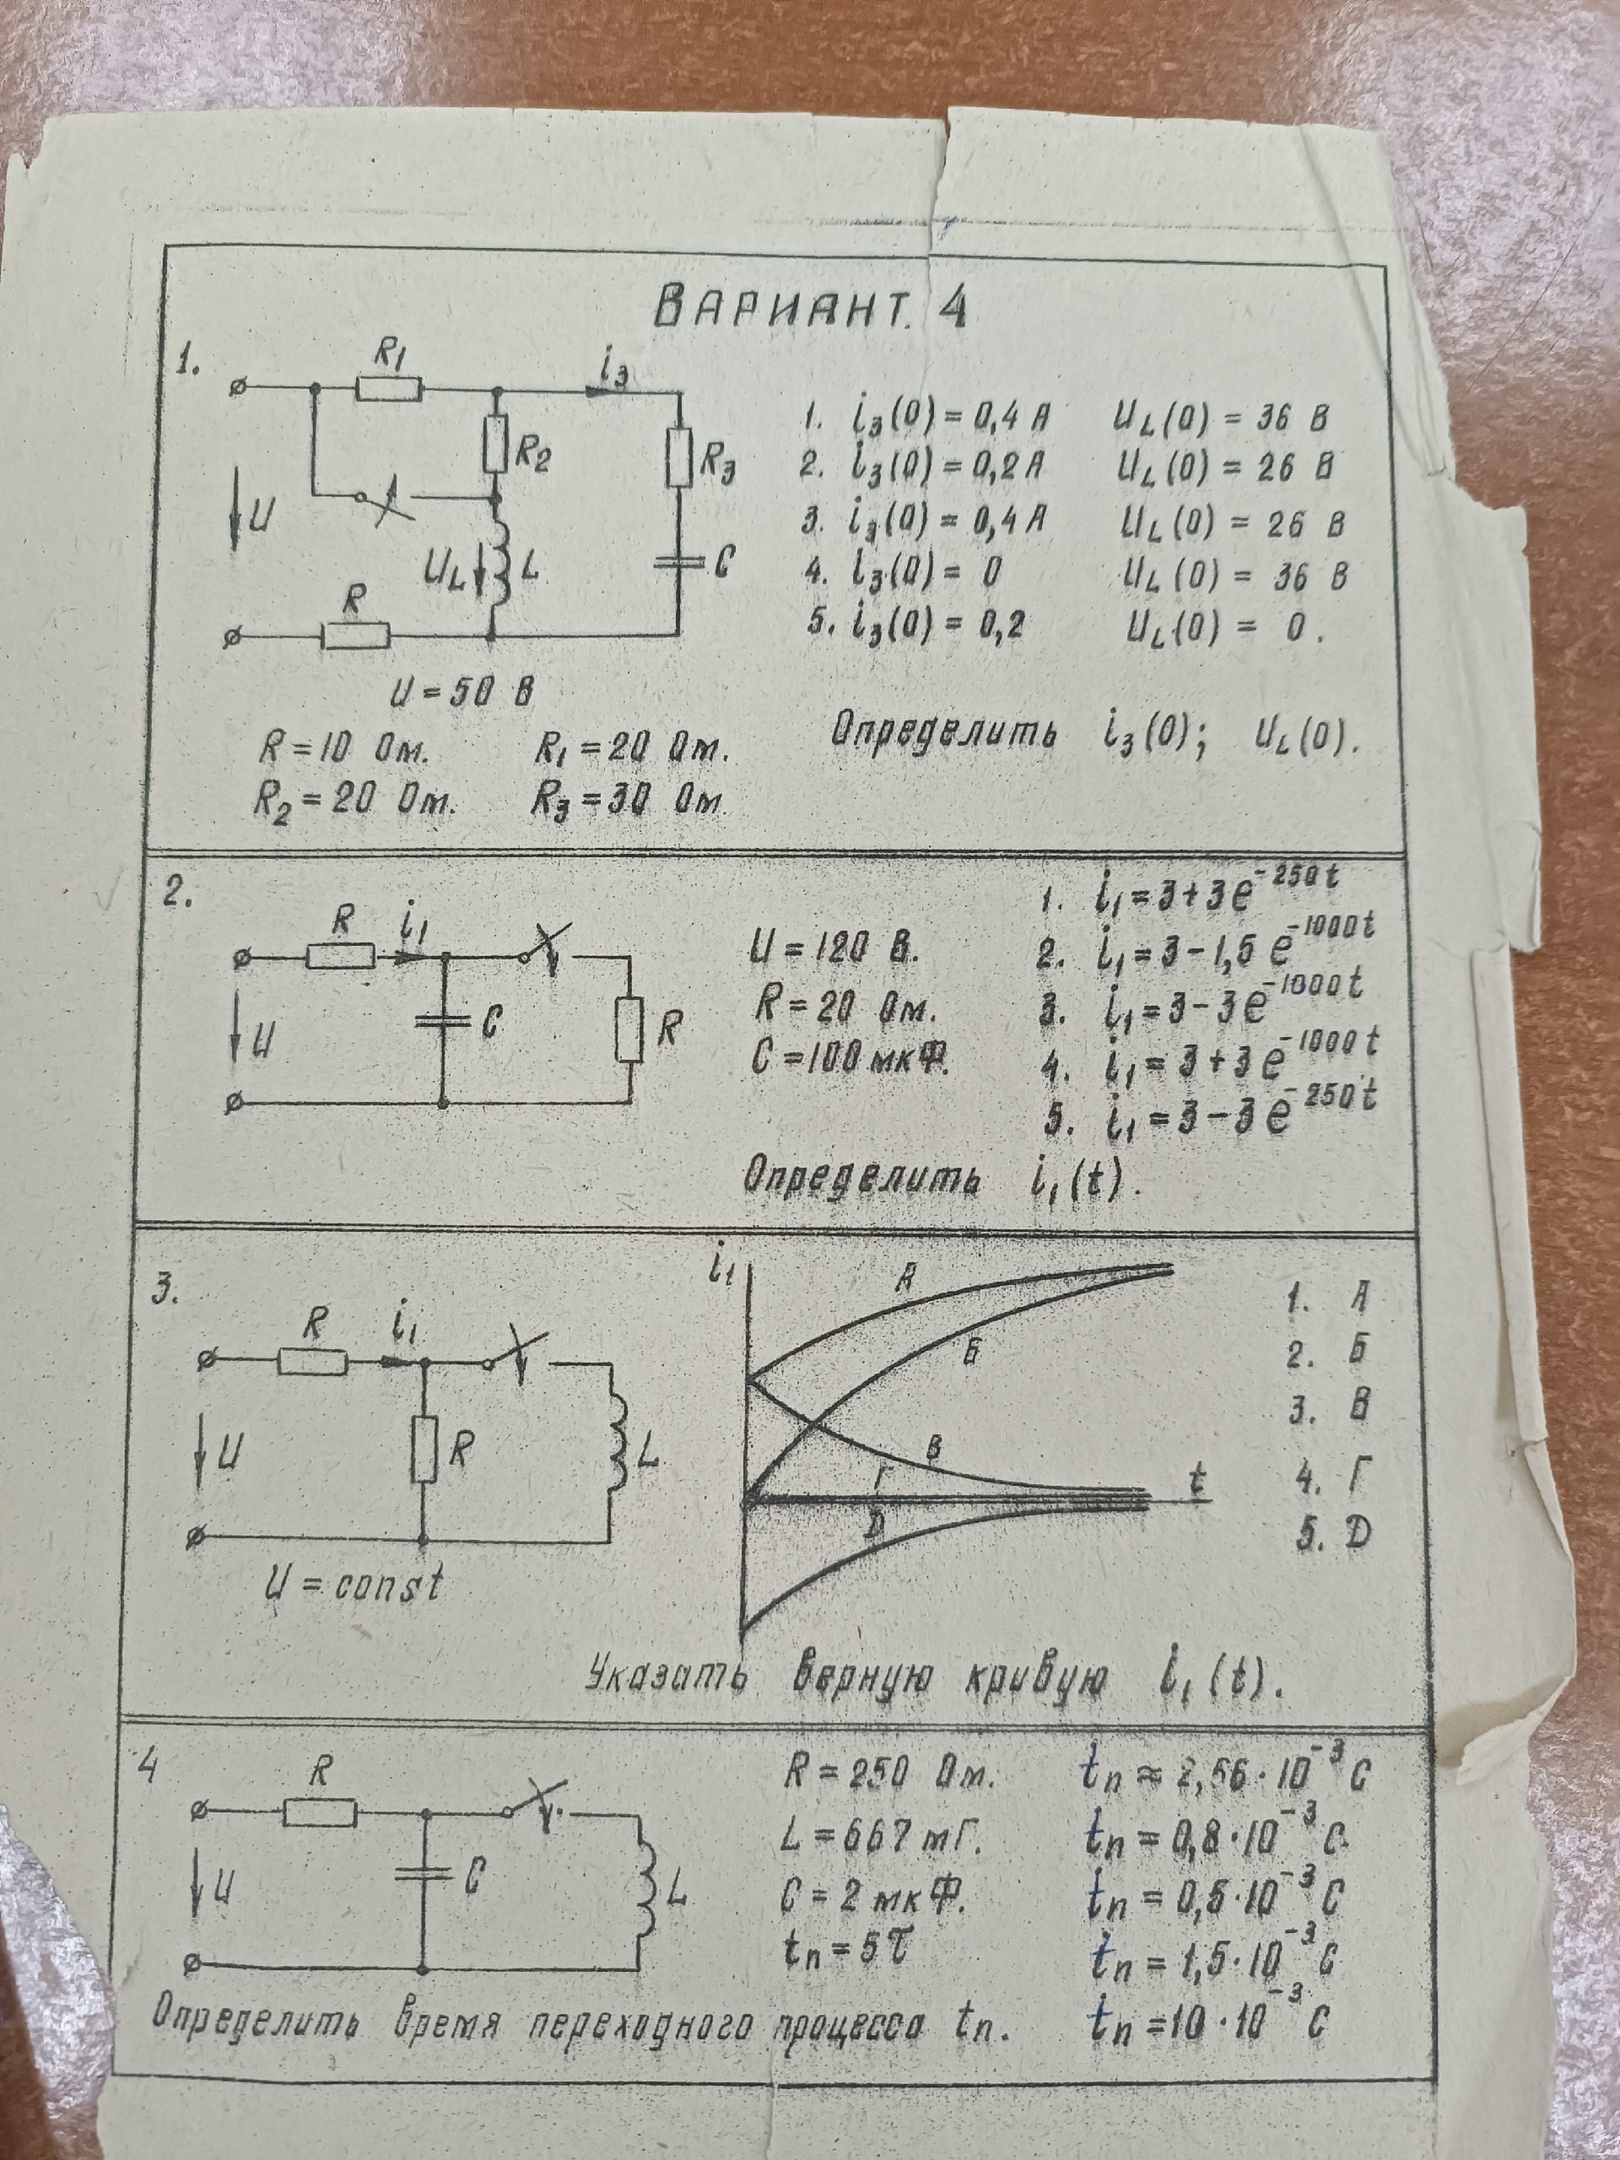 ВАРИАНТ. 4
1.
R1
i3
R2
R3
U
UL
L
C
R
U = 50 В
R = 10 Ом. R1 = 20 Ом.
R2 = 20 Ом. R3 = 30 Ом
1. i3(0) = 0,4 А UL(0) = 36 В
2. i3(0) = 0,2 А UL(0) = 26 В
3. i3(0) = 0,4 А UL(0) = 26 В
4. i3(0) = 0 UL(0) = 36 В
5. i3(0) = 0,2 UL(0) = 0.
Определить i3(0); UL(0).
2.
R
i1
U
C
R
U = 120 В.
R = 20 Ом.
C = 100 мкФ.
1. i1 = 3 + 3e^-250t
2. i1 = 3 - 1,5 e^-1000t
3. i1 = 3 - 3e^-1000t
4. i1 = 3 + 3e^-1000t
5. i1 = 3 - 3e^-250t
Определить i1(t).
3.
R
i1
U
R
L
U = const
i1
А
Б
В
Г
D
t
1. А
2. Б
3. В
4. Г
5. D
Указать верную кривую i1(t).
4
R
U
C
L
R = 250 Ом.
L = 667 мГ.
C = 2 мкФ.
tп = 5τ
tп ≈ 2,56·10^-3 С
tп = 0,8·10^-3 С.
tп = 0,5·10^-3 С
tп = 1,5·10^-3 С
tп = 10·10^-3 С
Определить время переходного процесса tп.